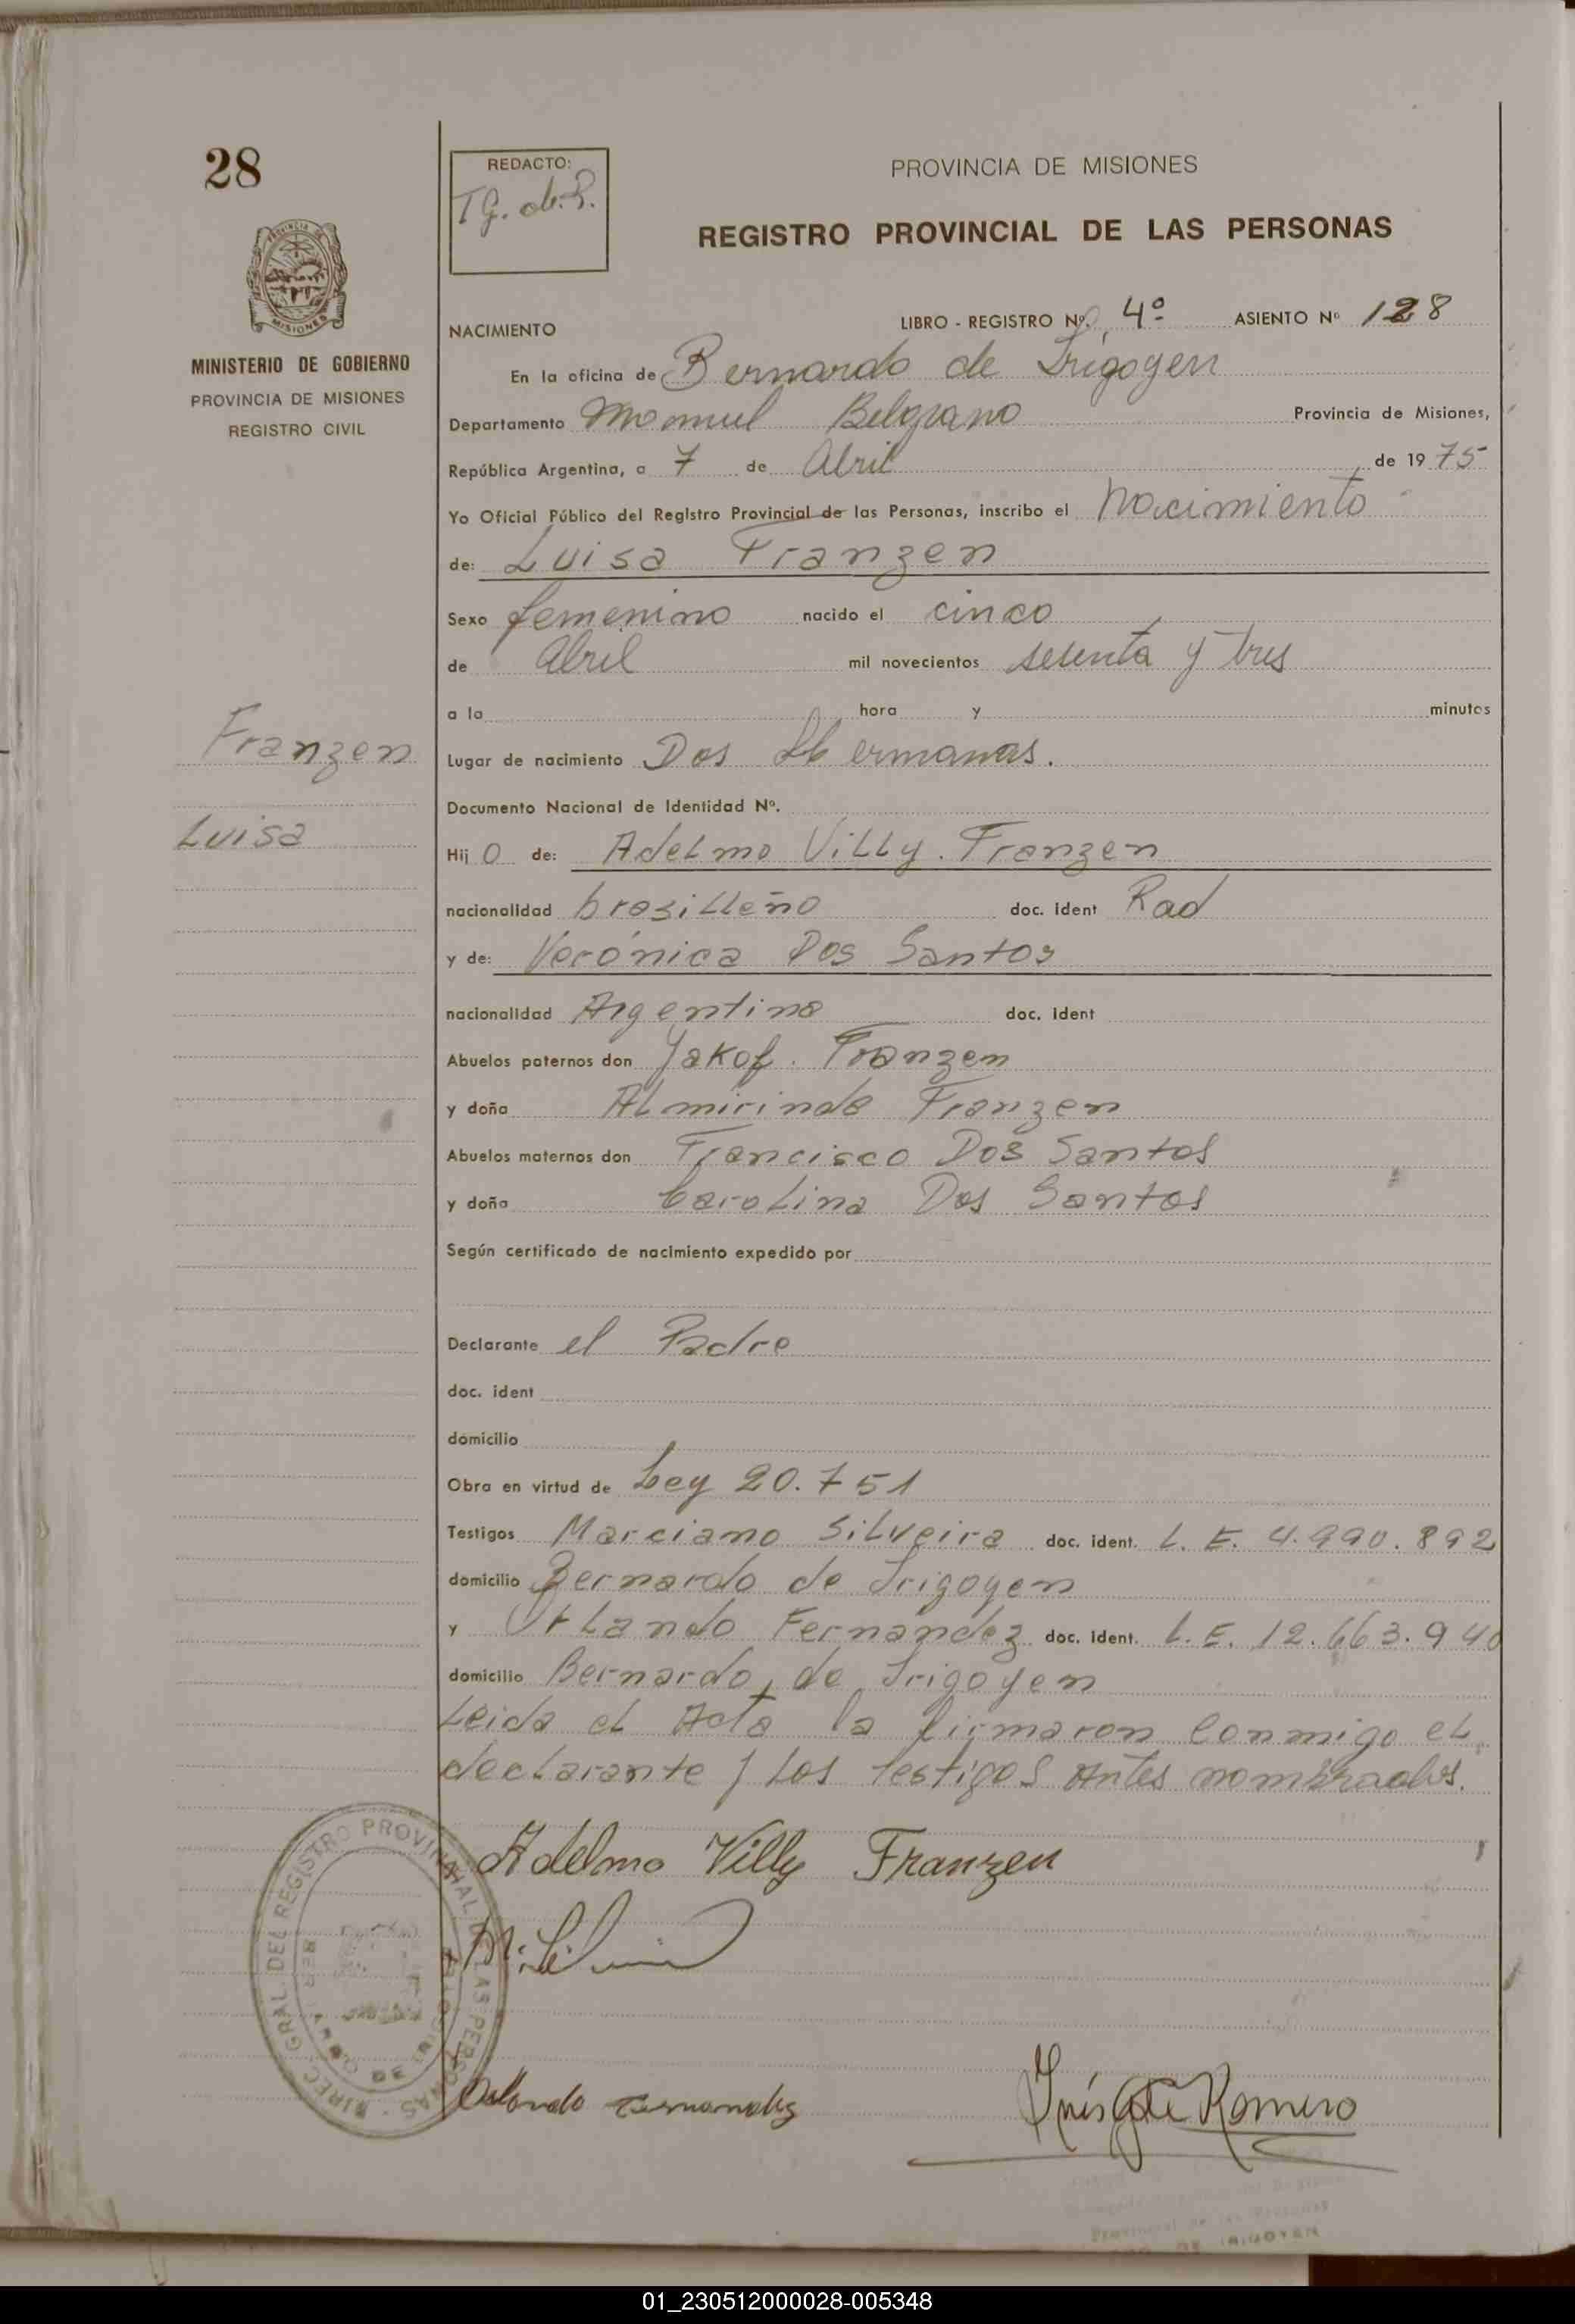 28
REDACTO:
T G. de R.
PROVINCIA DE MISIONES
REGISTRO PROVINCIAL DE LAS PERSONAS
MISIONES
MINISTERIO DE GOBIERNO
PROVINCIA DE MISIONES
REGISTRO CIVIL
NACIMIENTO LIBRO - REGISTRO Nº. 4º ASIENTO Nº 128
En la oficina de Bernardo de Irigoyen
Departamento Manuel Belgrano Provincia de Misiones,
República Argentina, a 7 de Abril de 1975
Yo Oficial Público del Registro Provincial de las Personas, inscribo el Nacimiento
de: Luisa Franzen
Sexo femenino nacido el cinco
de Abril mil novecientos setenta y tres
a la hora y minutos
Franzen
Luisa
Lugar de nacimiento Dos Hermanas.
Documento Nacional de Identidad Nº.
Hij o de: Adelmo Villy. Franzen
nacionalidad brasilleño doc. ident Rad
y de: Verónica Dos Santos
nacionalidad Argentina doc. ident
Abuelos paternos don Jakof. Franzen
y doña Almirinda Franzen
Abuelos maternos don Francisco Dos Santos
y doña Carolina Dos Santos
Según certificado de nacimiento expedido por
Declarante el Padre
doc. ident
domicilio
Obra en virtud de Ley 20.751
Testigos Marciano Silveira doc. ident. L. E. 4.990.892
domicilio Bernardo de Irigoyen
y Orlando Fernández doc. ident. L. E. 12.663.940
domicilio Bernardo de Irigoyen
Leida el Acta la firmaron conmigo el
declarante y los testigos Antes nombrados.
Adelmo Villy Franzen
Orlando Fernandez
Inés G de Romero
DIREC. GRAL. DEL REGISTRO PROVINCIAL DE LAS PERSONAS
Provincial de las Personas
DE IRIGOYEN
01_230512000028-005348